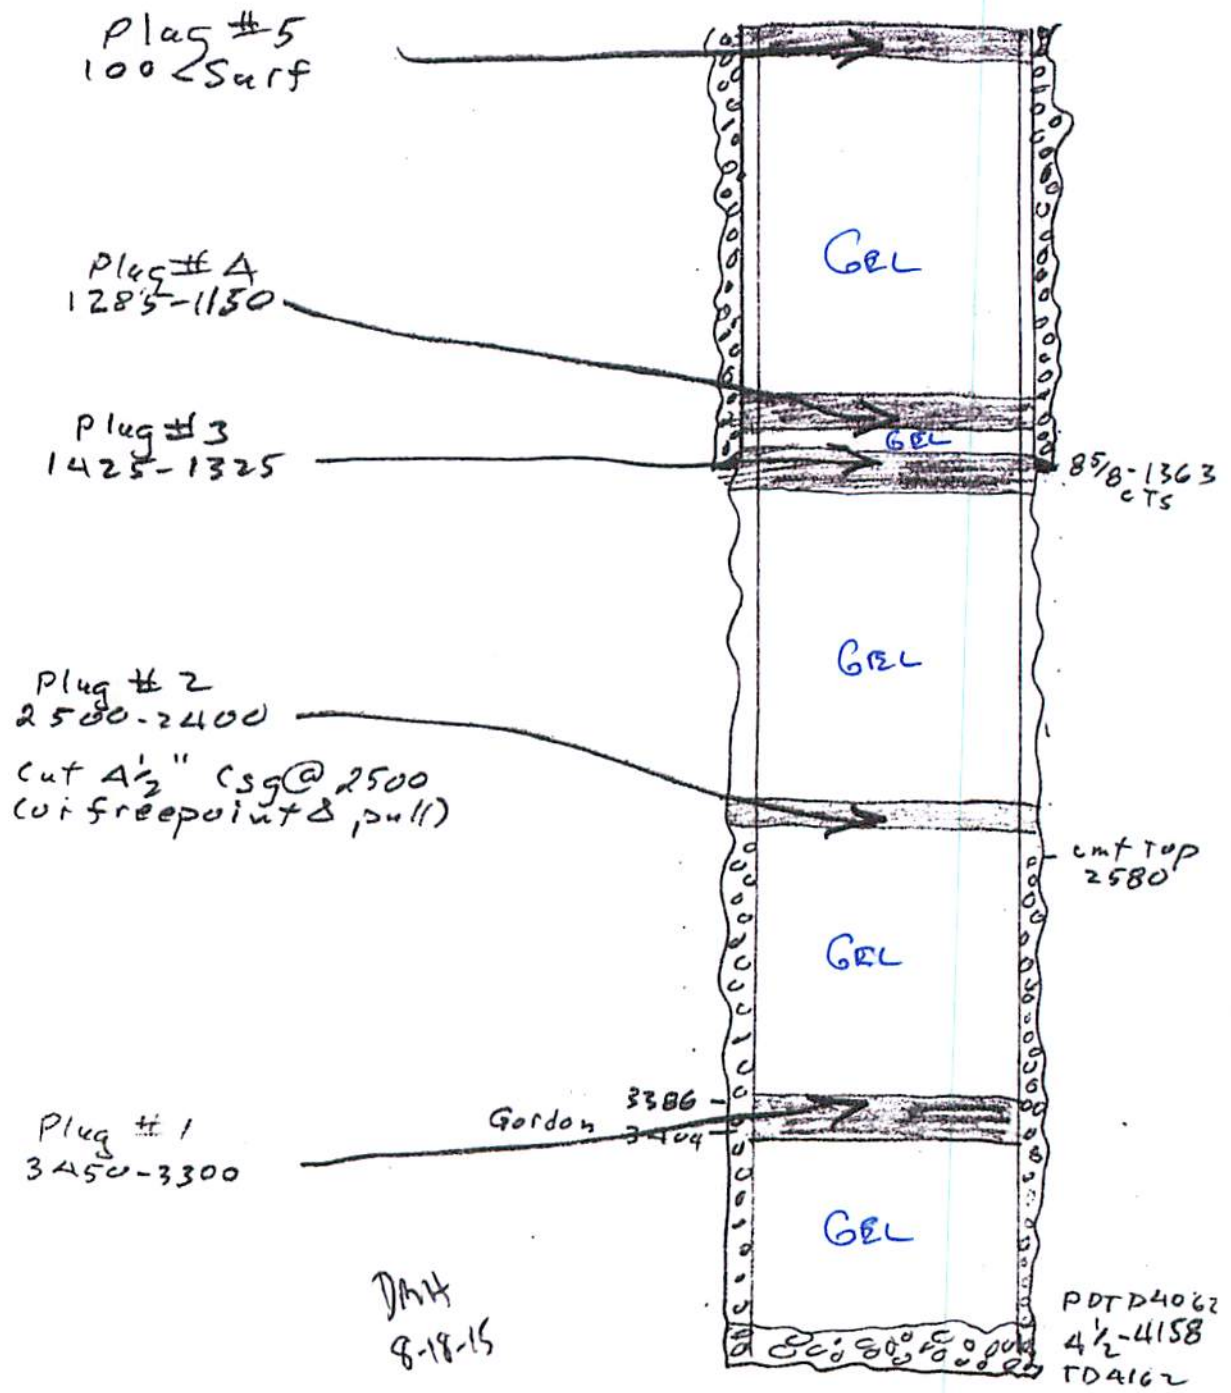 Plug #5
100 < Surf
GEL
Plug # 4
1285-1150
GEL
Plug # 3
1425-1325
8 5/8-1363
CTS
GEL
Plug # 2
2500-2400
Cut 4 1/2" Csg @ 2500
(or freepoint & pull)
cmt Top
2580
GEL
3386
Gordon
3404
Plug # 1
3450-3300
GEL
DMH
8-18-15
PDTD4062
4 1/2-4158
TD4162